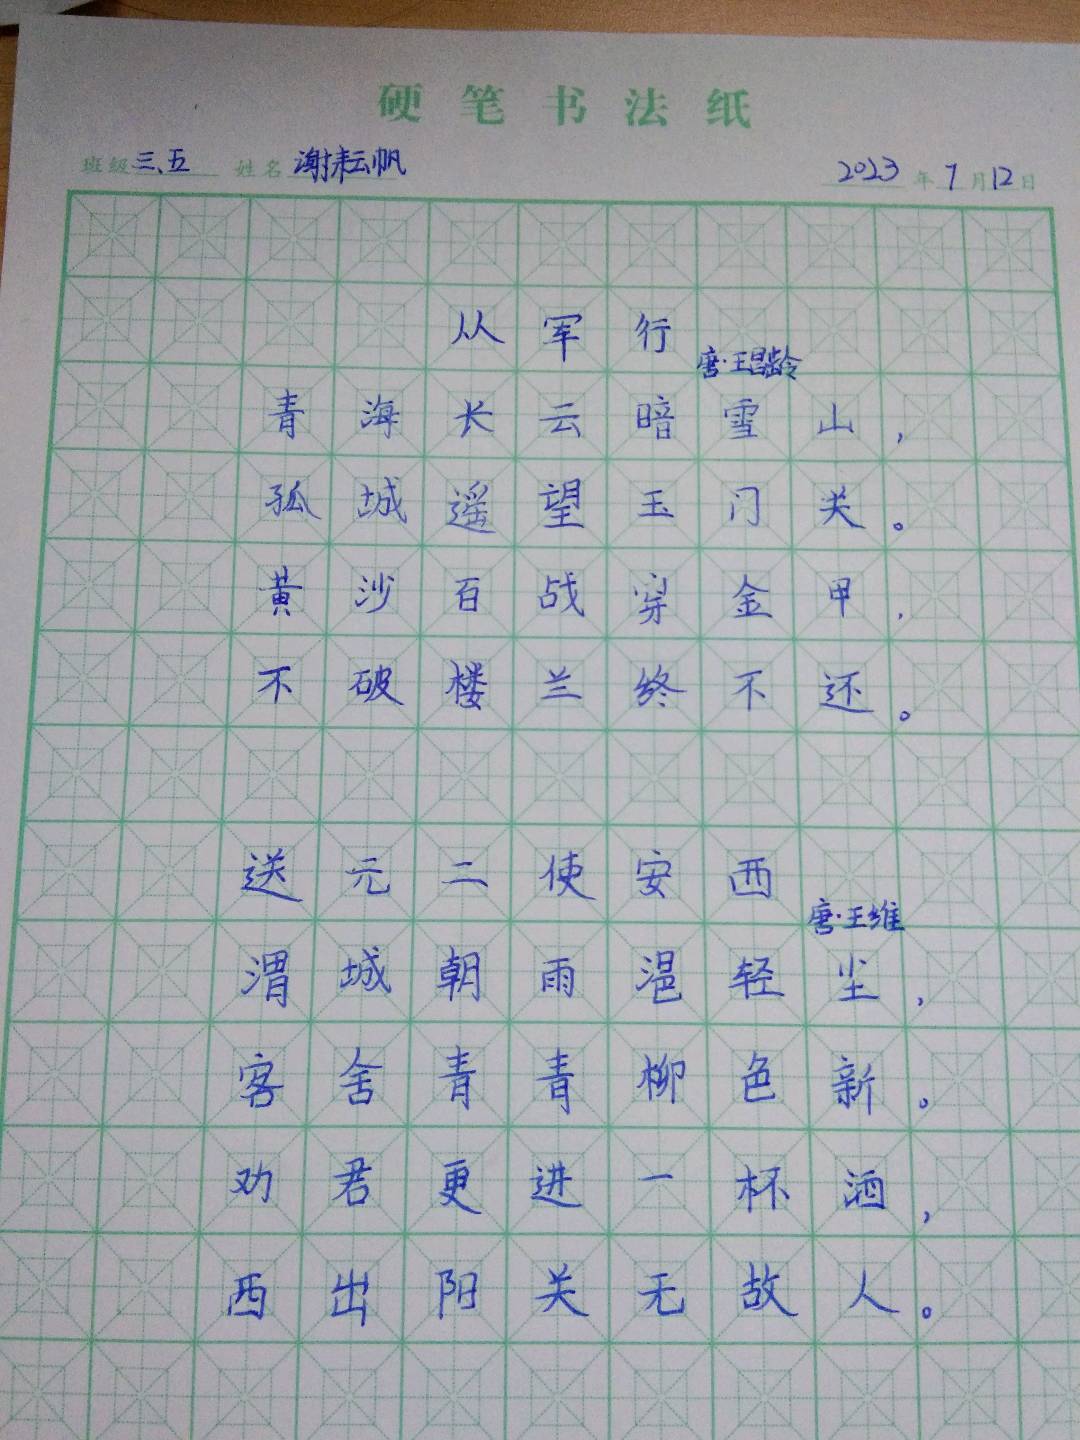 硬笔书法纸
班级 三、五 姓名 谢耘帆 2023年7月12日
从军行
唐·王昌龄
青海长云暗雪山，
孤城遥望玉门关。
黄沙百战穿金甲，
不破楼兰终不还。
送元二使安西
唐·王维
渭城朝雨浥轻尘，
客舍青青柳色新。
劝君更进一杯酒，
西出阳关无故人。